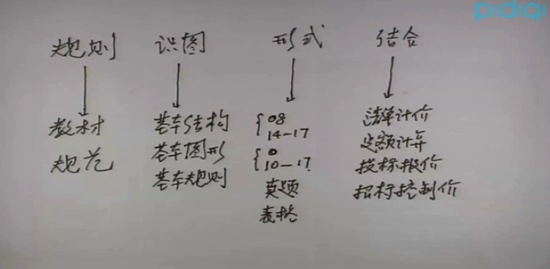 pidiqi
规则 识图 形式 结合
教材 基本结构 08 清单计价
14-17 定额计算
规范 基本图形 0 投标报价
基本规则 10-17 招标控制价
真题
表格